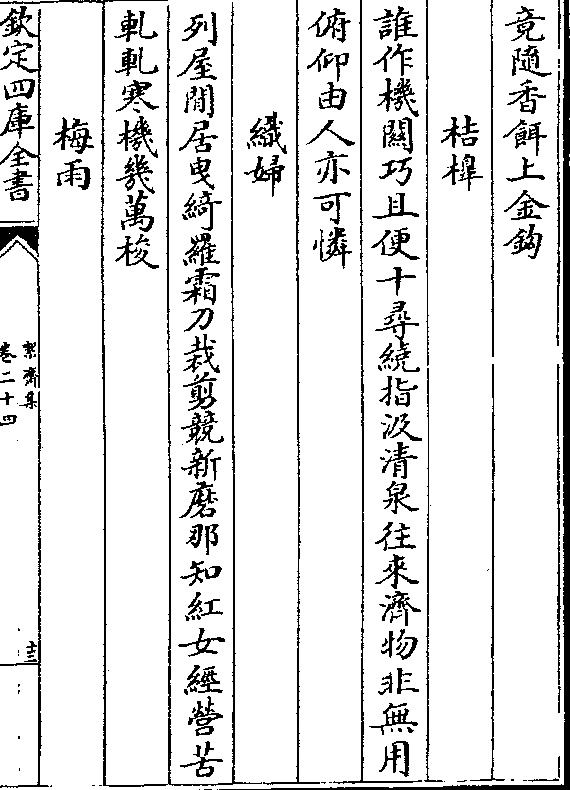 竟隨香餌上金鈎
桔槹
誰作機關巧且便十尋繞指汲清泉往來濟物非無用
俯仰由人亦可憐
織婦
列屋閒居曳綺羅霜刀裁剪競新磨那知紅女經營苦
軋軋寒機幾萬梭
梅雨
欽定四庫全書
絜齋集
卷二十四
十三